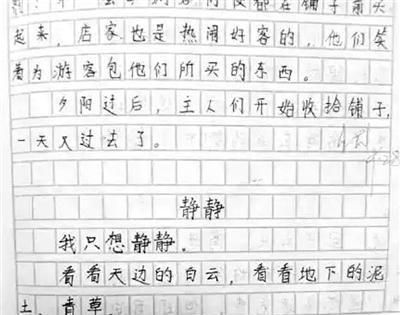 都在铺子前买
起来，店家也是热闹好客的，他们笑
着为游客包他们所买的东西。
夕阳过后，主人们开始收拾铺子，
一天又过去了。
静静
我只想静静。
看看天边的白云，看看地下的泥
土，青草